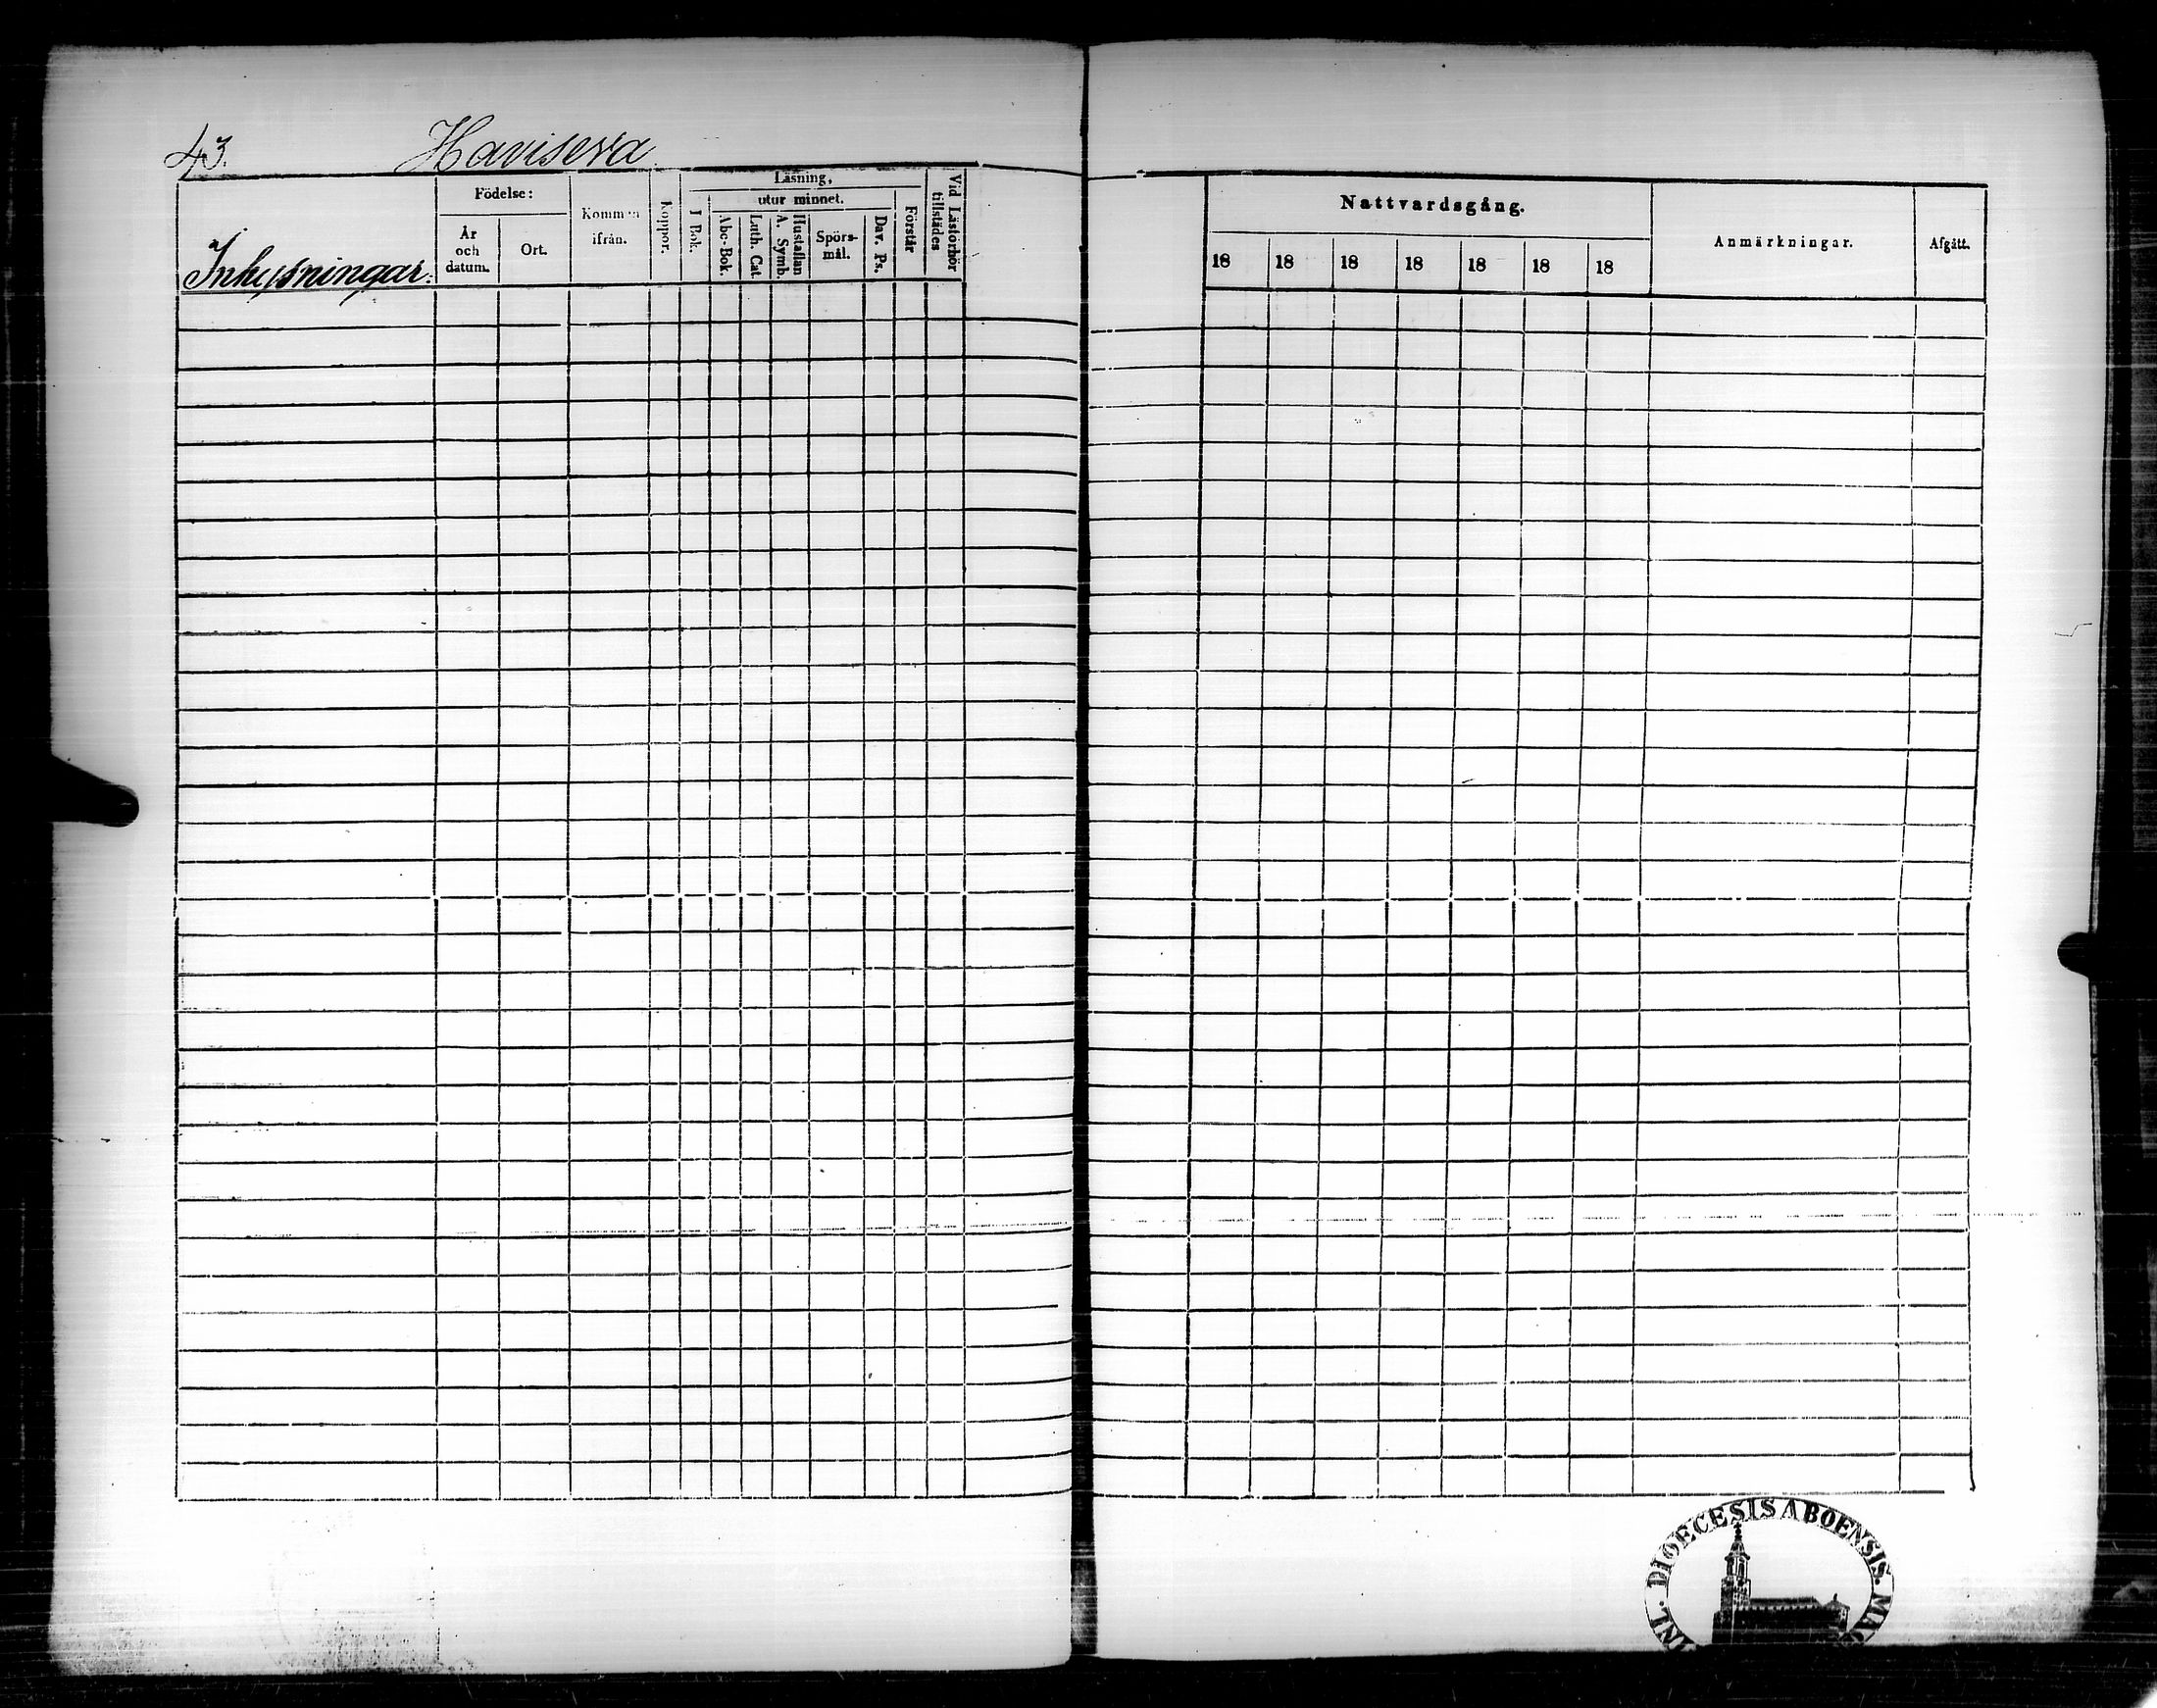 43.
Haviseva
Inhysningar.
Födelse:
År
och
datum.
Ort.
Kommen
ifrån.
Koppor.
Läsning,
utur minnet.
I Bok.
Abc-Bok.
Luth. Cat.
A. Symb.
Hustaflan
Spörs-
mål.
Dav. Ps.
Förstår
Vid Läsförhör
tillstädes
Nattvardsgång.
18 18 18 18 18 18 18
Anmärkningar.
Afgått.
DIOECESIS ABOENSIS.